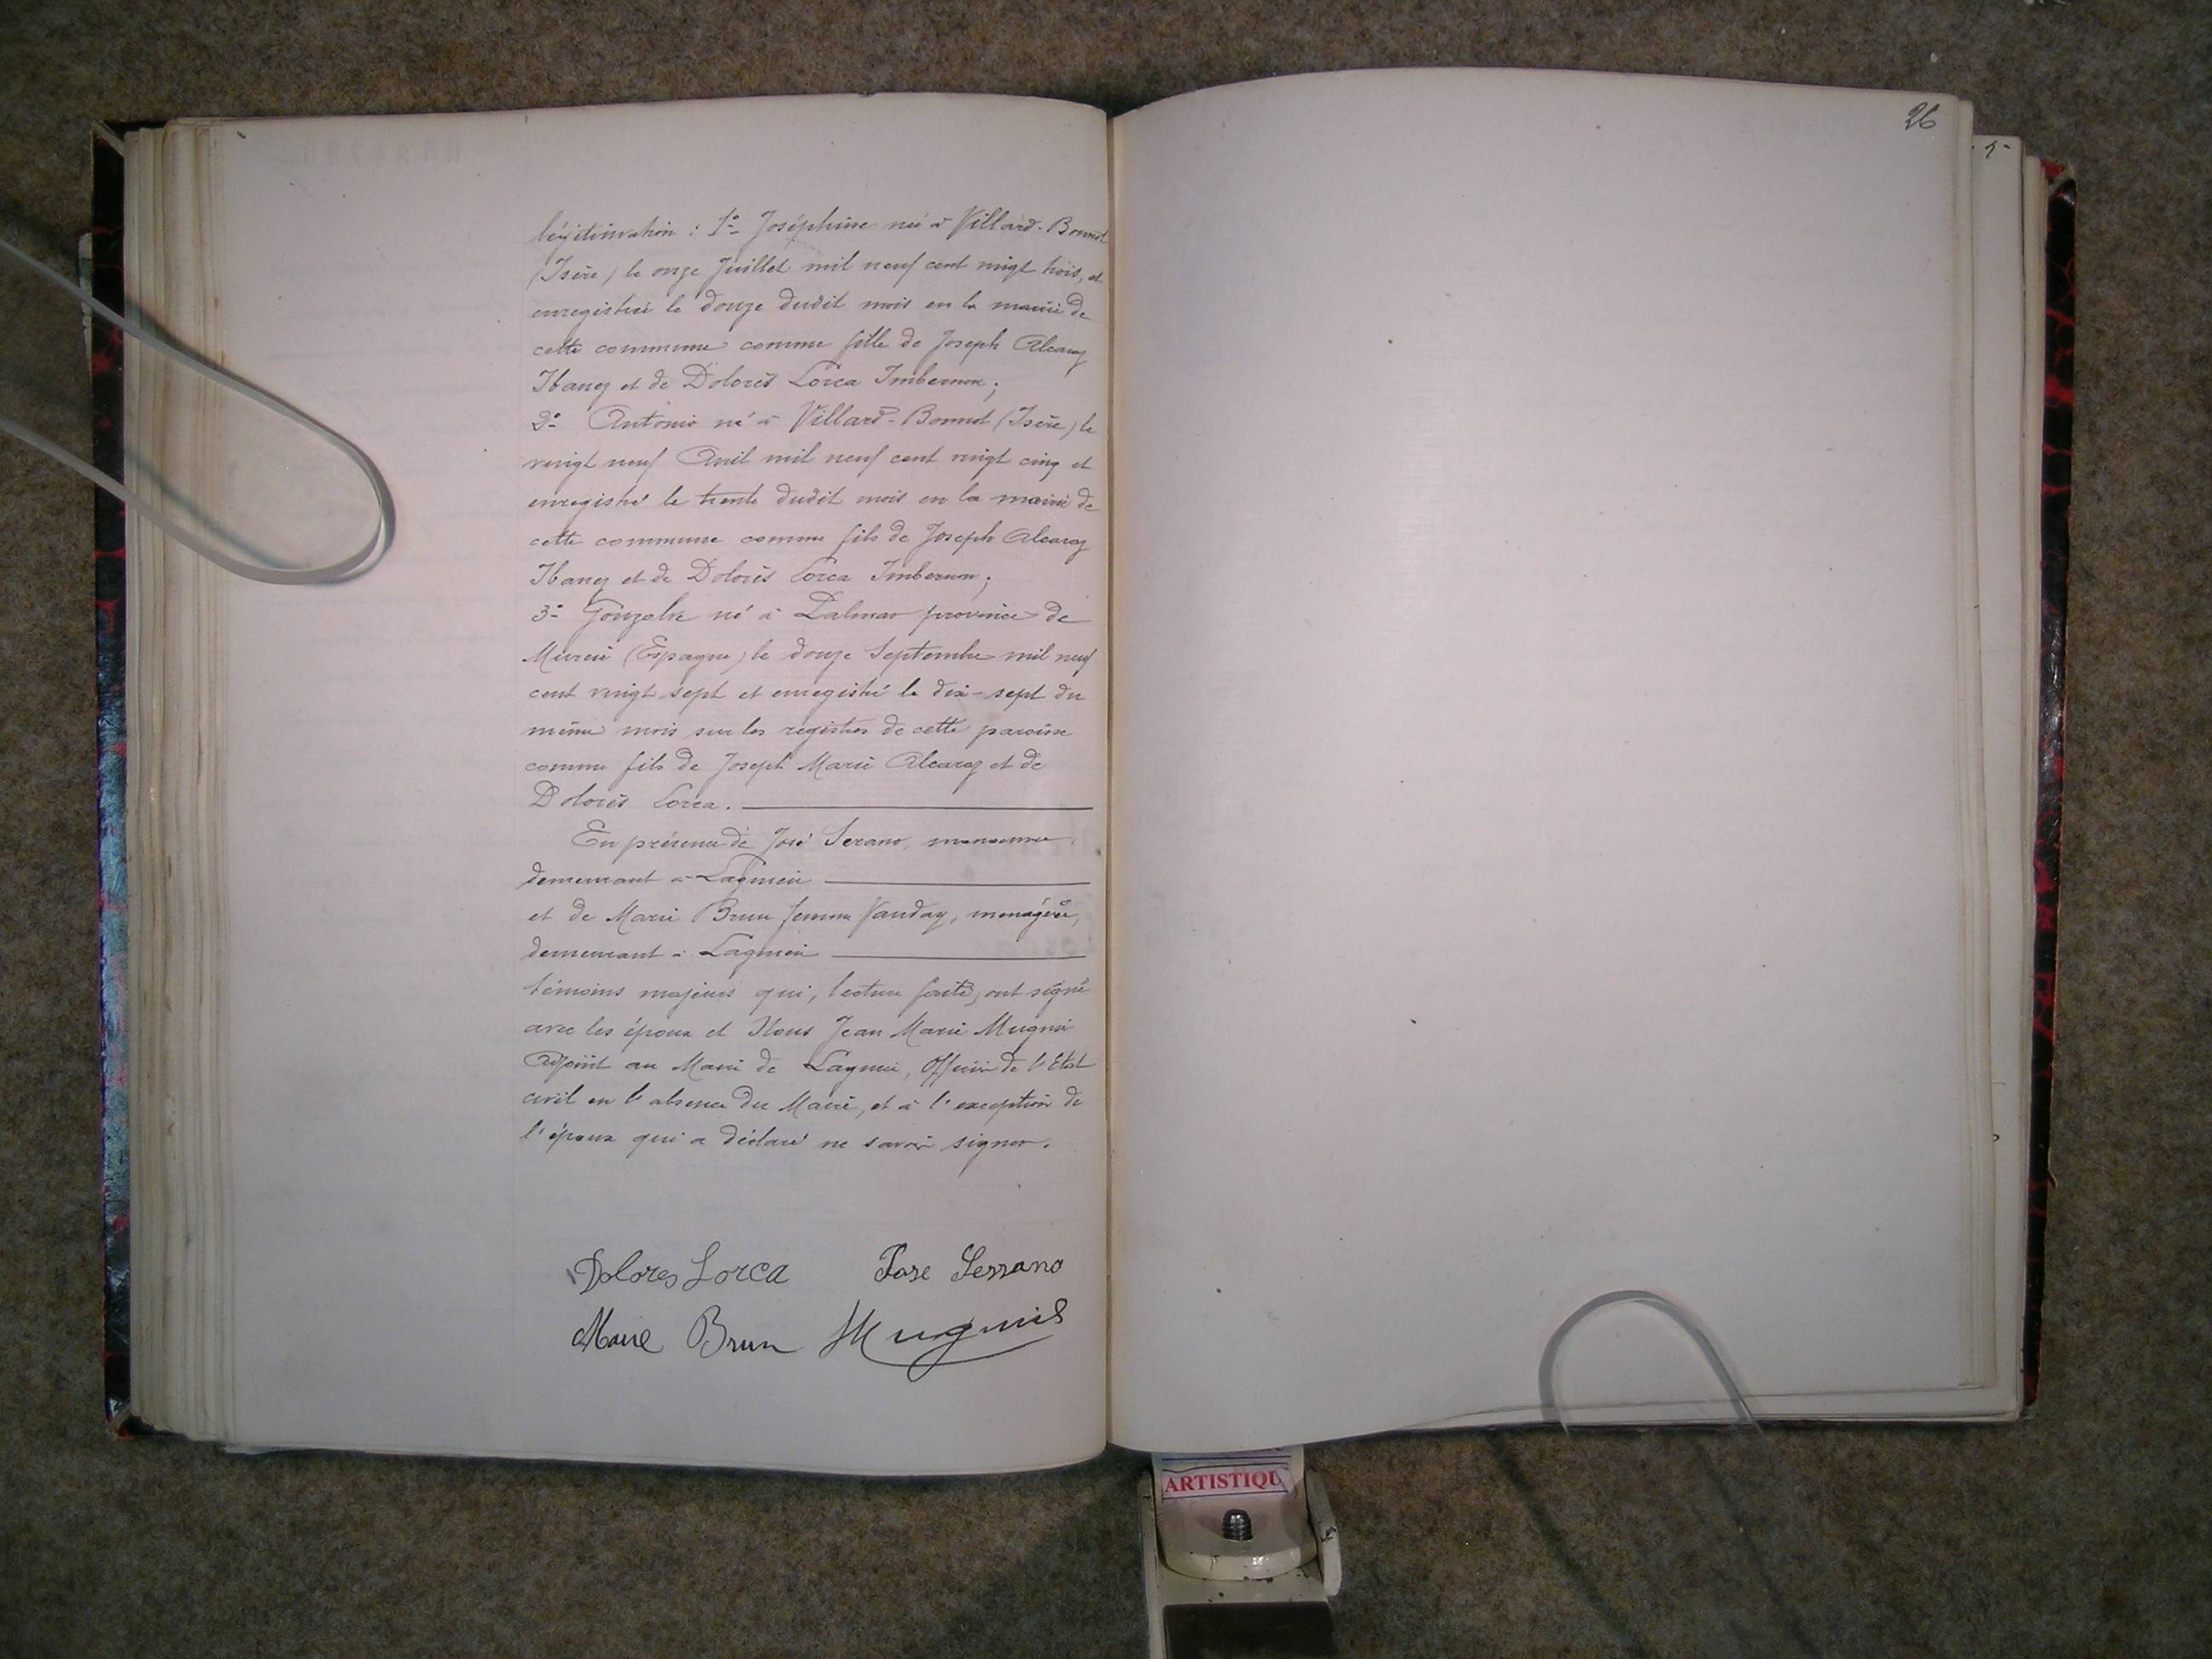 légitimation : 1º Joséphine née à Villard-Bonnot
(Isère) le onze Juillet mil neuf cent vingt trois, et
enregistrée le douze dudit mois en la mairie de
cette commune comme fille de Joseph Alcaraz
Ibanez et de Dolorès Lorca Imbernon ;
2º Antonio né à Villard-Bonnot (Isère) le
vingt neuf Avril mil neuf cent vingt cinq et
enregistré le trente dudit mois en la mairie de
cette commune comme fils de Joseph Alcaraz
Ibanez et de Dolorès Lorca Imbernon ;
3º Gonzalve né à Palmar province de
Murcie (Espagne) le douze Septembre mil neuf
cent vingt sept et enregistré le dix-sept du
même mois sur les registres de cette paroisse
comme fils de Joseph Marie Alcaraz et de
Dolorès Lorca.
En présence de José Serano, manoeuvre,
demeurant à Lagnieu
et de Marie Brun femme Vanday, ménagère,
demeurant à Lagnieu
témoins majeurs qui, lecture faite, ont signé
avec les époux et Nous Jean Marie Mugnier
Adjoint au Maire de Lagnieu, Officier de l'Etat
civil en l'absence du Maire, et à l'exception de
l'époux qui a déclaré ne savoir signer.
Dolores Lorca Jose Serrano
Marie Brun Mugnier
26
ARTISTIQU